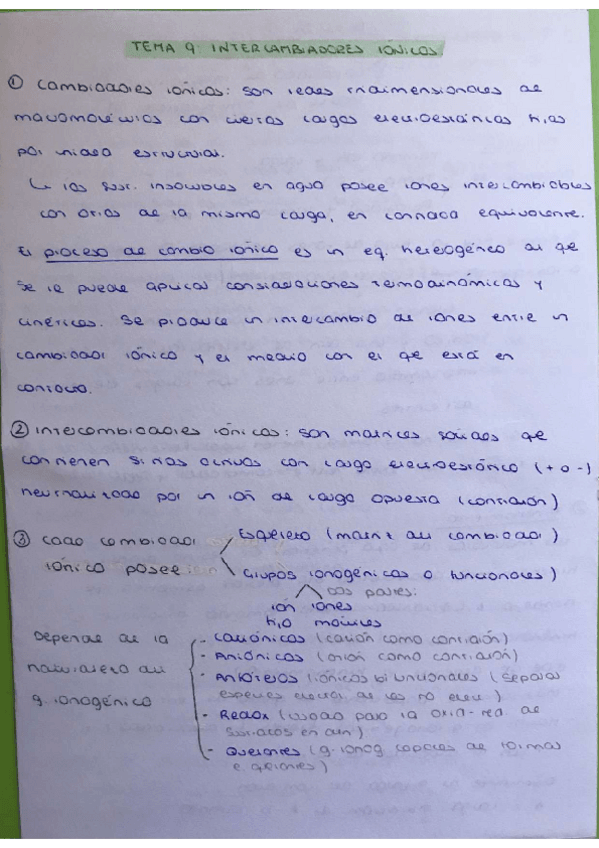 TEMA 9: INTERCAMBIADORES IÓNICOS
① Cambiadores iónicos: son redes tridimensionales de
macromoléculas con ciertas cargas electrostáticas fijas
por unidad estructural.
↳ las sust. insolubles en agua posee iones intercambiables
con otros de la misma carga, en cantidad equivalente.
El proceso de cambio iónico es un eq. heterogéneo al que
se le puede aplicar consideraciones termodinámicas y
cinéticas. Se produce un intercambio de iones entre un
cambiador iónico y el medio con el que está en
contacto.
② Intercambiadores iónicos: son matrices sólidas que
contienen sitios activos con carga electrostática (+ o -)
neutralizada por un ión de carga opuesta (contraión)
③ Cada cambiador
iónico posee:
Esqueleto (matriz del cambiador)
Grupos ionogénicos o funcionales)
dos partes:
ión iones
fijo móviles
Depende de la
naturaleza del
g. ionogénico
- Catiónicos (catión como contraión)
- Aniónicos (anión como contraión)
- Anfóteros: iónicos bifuncionales (separar
especies electrol. de las no elect.)
- Redox (usado para la oxid-red. de
sustratos en dón)
- Quelantes (g. ionog capaces de formas
e quelantes)